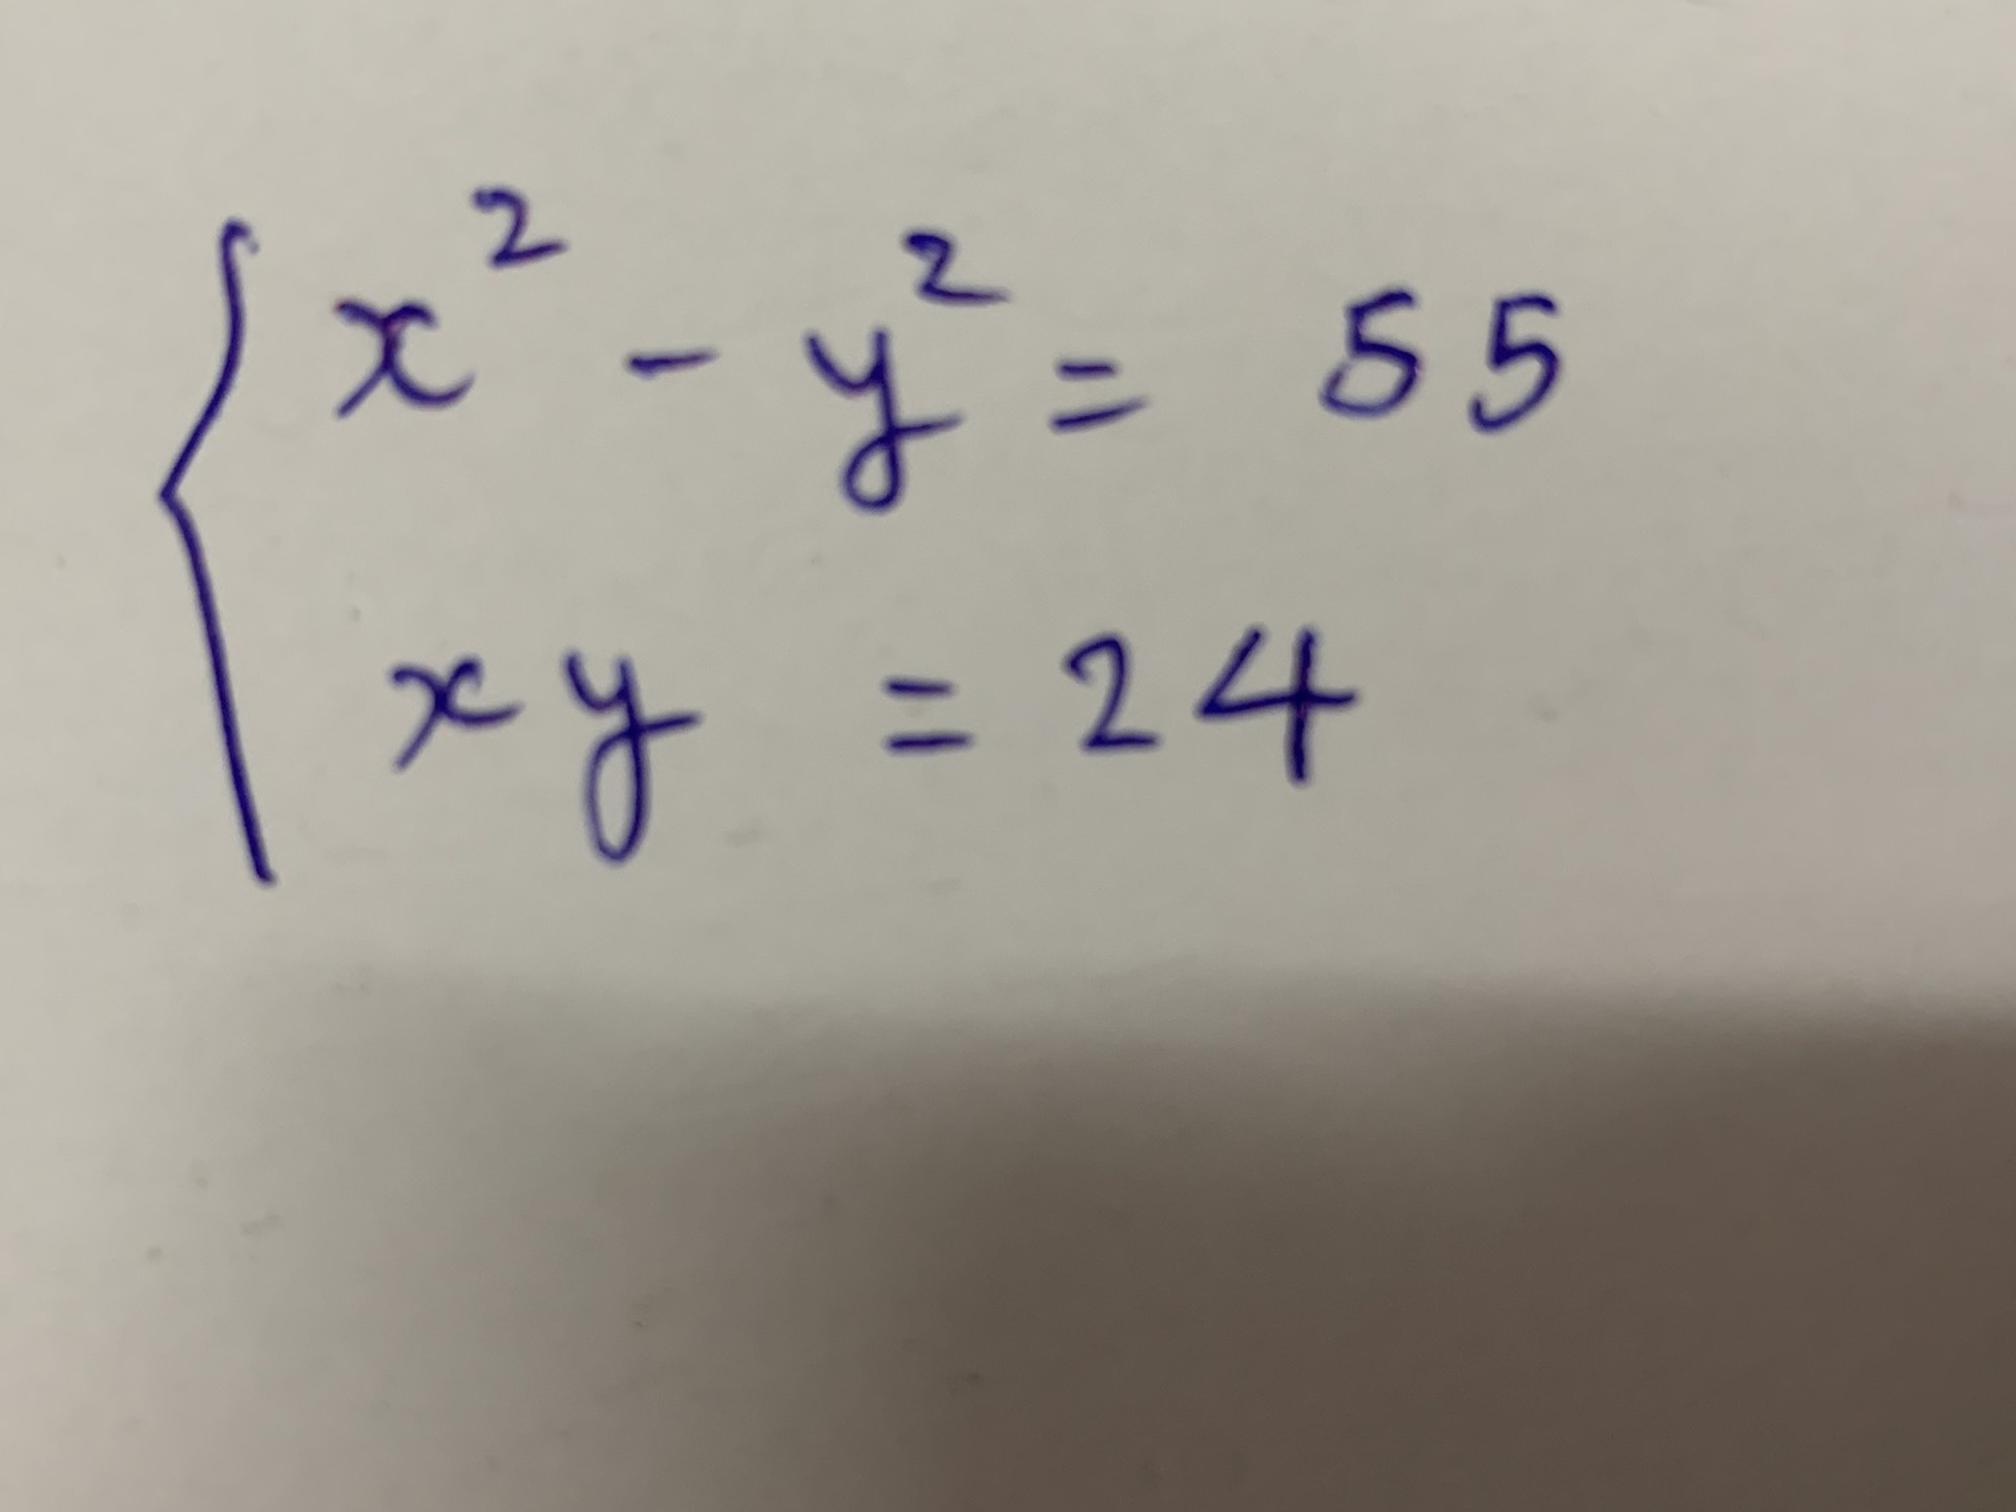 x² - y² = 55
xy = 24